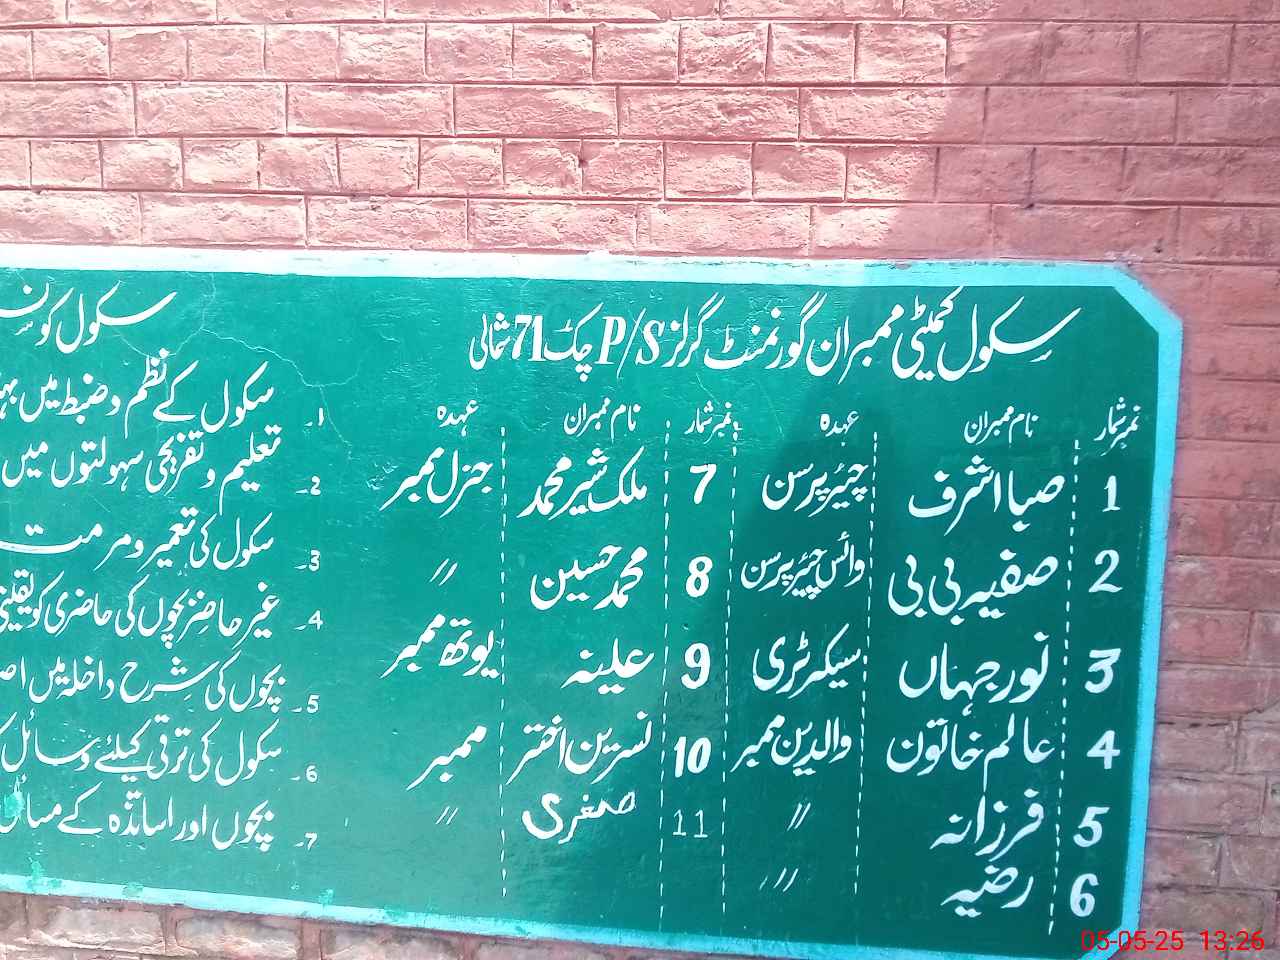 سکول کمیٹی ممبران گورنمنٹ گرلز P/S چک 71 شمالی
نمبر شمار نام ممبران عہدہ نمبر شمار نام ممبران عہدہ
1 صبا اشرف چیئرپرسن 7 ملک شیر محمد جنرل ممبر
2 صفیہ بی بی وائس چیئرپرسن 8 محمد حسین "
3 نور جہاں سیکرٹری 9 علینہ یوتھ ممبر
4 عالم خاتون والدین ممبر 10 نسرین اختر ممبر
5 فرزانہ " 11 صغری "
6 رضیہ "
سکول کونس
1۔ سکول کے نظم و ضبط میں
2۔ تعلیم و تفریحی سہولتوں میں
3۔ سکول کی تعمیر و مرمت
4۔ غیر حاضر بچوں کی حاضری کو یقینی
5۔ بچوں کی شرح داخلہ میں
6۔ سکول کی ترقی کیلئے وسائل
7۔ بچوں اور اساتذہ کے
05-05-25 13:26